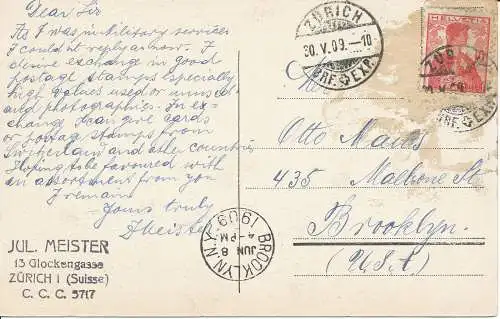 Dear Sir
As I was in Military services
I could't reply arlow. I
desire exchange in good
postage stamps especially
high values used or unused
and photographies. In ex-
change I can give cards
or postage stamps from
Switzerland and other countries
Hoping to be favoured with
an assortment from you
I remain
Yours truly
JMeister
JUL. MEISTER
13 Glockengasse
ZÜRICH I (Suisse)
C. C. C. 5717
ZÜRICH
30. V. 09.-10
BRF. EXP.
HELVETIA
ZÜR
BRF. EXP
Otto
435 Malbone St.
Brooklyn.
(U.S.A.)
BROOKLYN, N.Y.
JUN 8
4-PM
1909